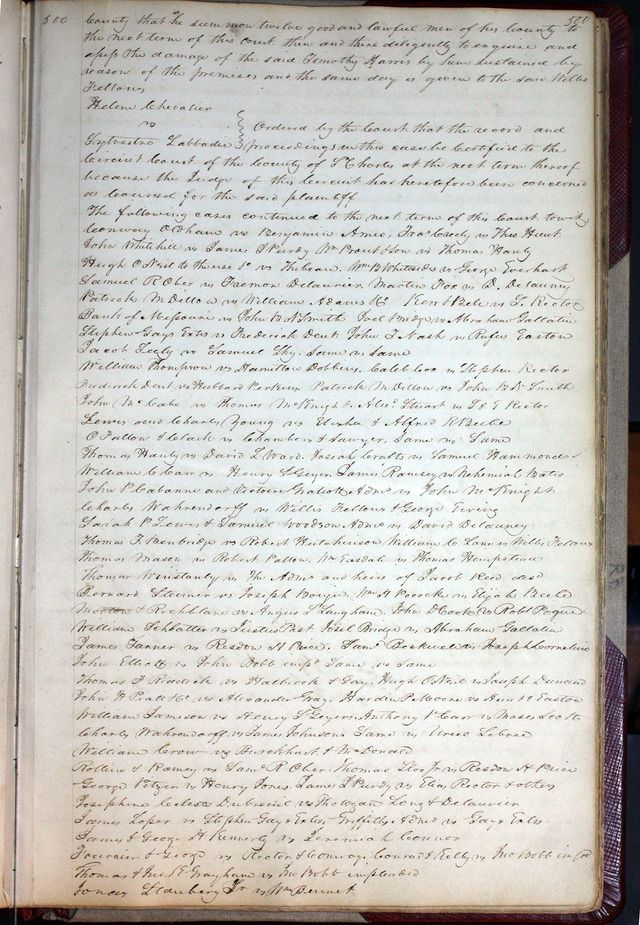 500 500
County that he summon twelve good and lawful men of his County to
the next term of this court then and there diligently to enquire and
assess the damage of the said Timothy Harris by him sustained by
reason of the premises and the same day is given to the said Willis
Fellows
Helene Chevalier
vs
Sylvestre Labbadie } Ordered by the Court that the record and
proceedings in this case be Certified to the
Circuit Court of the County of St Charles at the next term thereof
because the Judge of this Circuit has heretofore been concerned
as counsel for the said plaintiff
The following cases continued to the next term of this Court towit
Conway Oldham vs Benjamin Ames, Fras Creely vs Theo Hunt
John Whitehill vs James J Purdy Wm Proust & Son vs Thomas Hanly
Hugh O Neil to the use &c vs Thibeau. Wm B Whitesides vs George Everhart
Samuel R Ober vs Freemon Delaurier Martin Fox vs D. Delauney
Patrick M Dillon vs William Adams &c Kerr & Bele vs T. Rector
Bank of Missouri vs John B N Smith Joel Bridge vs Abraham Gallatin
Stephen Gays Exts vs Frederick Dent John T Nash vs Rufus Easton
Jacob vs Samuel Same vs Same
William Thompson vs Hamilton Dobbins, Caleb Cox vs Stephen Rector
Frederick Dent vs Hibbard Perkins Patrick M Dillon vs John B N Smith
John Mc Cabe vs Thomas McKnight, Alexr Stuart vs T & E Rector
Lewis and Charles Young vs Elisha & Alfred K Beebe
O Fallon & Clark vs Chambers & Sawyer, Same vs Same
Thomas Hanly vs David L Ward. Josiah Cratts vs Samuel Hammond Sr
William C Carr vs Henry S Geyer James Ramsey vs Nehemiah Bates
John P Cabanne and Victoire Gratiott Admr vs John McKnight
Charles Wahrendorff vs Willis Fellows & George Ewing
Sarah P Lewis & Samuel Woodson Admr vs David Delauney
Thomas J Benbridge vs Robert Hutcherison William C Lane vs Willis Fellows
Thomas Mason vs Robert Patton. Wm Easdale vs Thomas Hempstead
Thomas Winstanly vs The Admr and heirs of Jacob Reed decd
Bernard Steimer vs Joseph Borger. Wm H Pocock vs Elijah Beebe
& Rochblane vs Angus L Langham, John D Cook vs Robt Pogue
William Schlatter vs Justus Post Josel Bridge vs Abraham Gallatin
James Tanner vs Resdon H Price, Saml Boskwell vs Joseph Cornelius
John Elliott vs John Bobb impd Same vs Same
Thomas F Riddick vs Halbrook & Fay, Hugh O Neil vs Joseph Duncan
John G Pratt &c vs Alexander Gray. Hardin P Moore vs Hunt & Easton
William Jameson vs Henry S Geyer Anthony V Carr vs Moses Scott
Charles Wahrendorff vs James Johnson Same vs
William Crow vs Burckhart & McDonald
Rollins & Ramey vs Saml R Ober Thomas Jr vs Resdon H Price
George Pitzer vs Henry Jones. James J Purdy vs Elias Rector & others
Josephine Celeste Dubreuil vs Long & Delaurier
James Loper vs Stephen Gays Extrs, Griffiths Admr vs Gays Extrs.
James & George H Kennerly vs Jeremiah Connor
& George vs Rector & Conway, Conrad & Kelly vs Jno Bobb impld
Thomas & Jno Grayham vs Jno Bobb impleaded
Jonas Stanbery Jr vs Wm Bennet